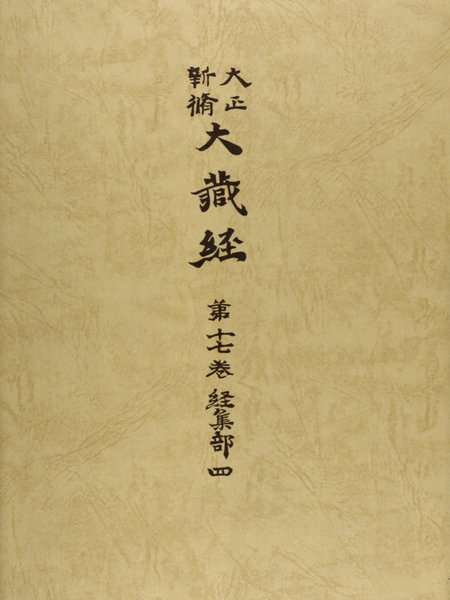 大正
新脩
大藏経
第十七巻 経集部 四